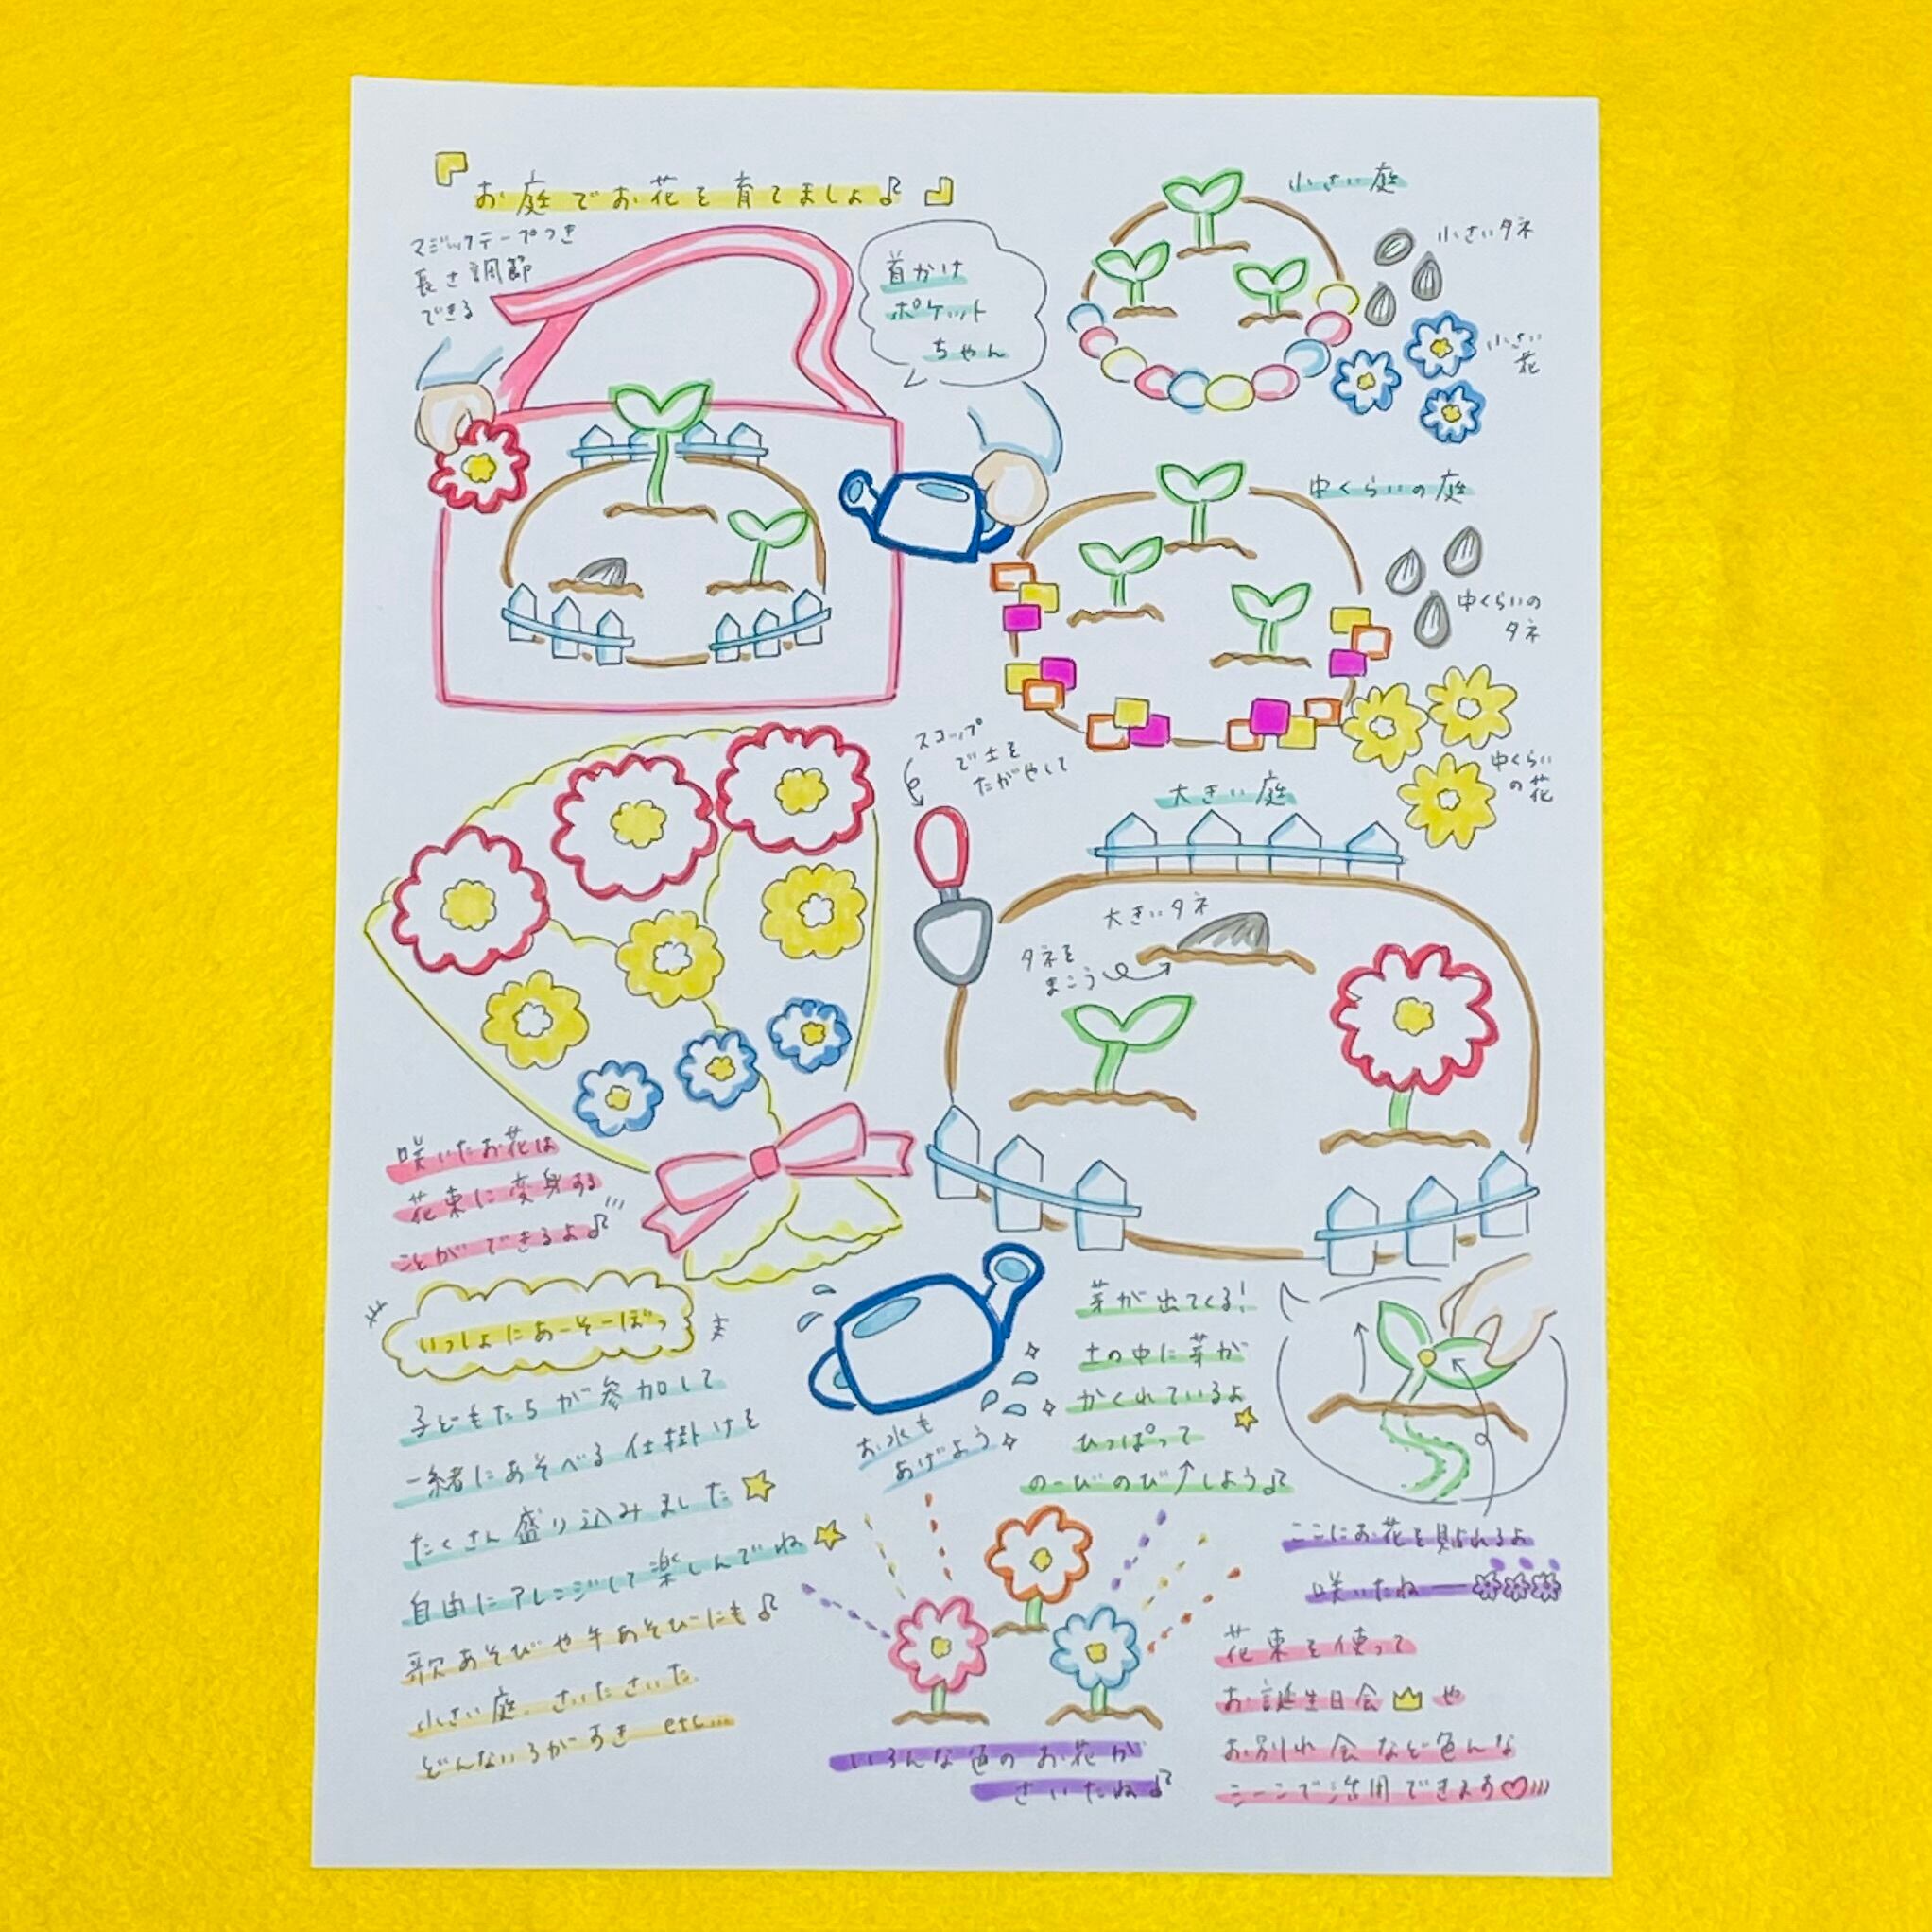 『お庭でお花を育てましょ♪』
マジックテープつき
長さ調節
できる
首かけ
ポケット
ちゃん
小さい庭
小さいタネ
小さい
花
中くらいの庭
中くらいの
タネ
中くらい
の花
スコップ
で土を
たがやして
大きい庭
大きいタネ
タネを
まこう
咲いたお花は
花束に変身する
ことができるよ♪
いっしょにあーそーぼっ
子どもたちが参加して
一緒にあそべる仕掛けを
たくさん盛り込みました☆
自由にアレンジして楽しんでね☆
歌あそびや手あそびにも♪
小さい庭、さいたさいた、
どんないろがすき etc...
お水も
あげよう
芽が出てくる!
土の中に芽が
かくれているよ
ひっぱって
のーびのび↑しよう♪
ここにお花を貼れるよ
咲いたねー
いろんな色のお花が
さいたね♪
花束を使って
お誕生日会や
お別れ会など色んな
シーンで活用できます♡